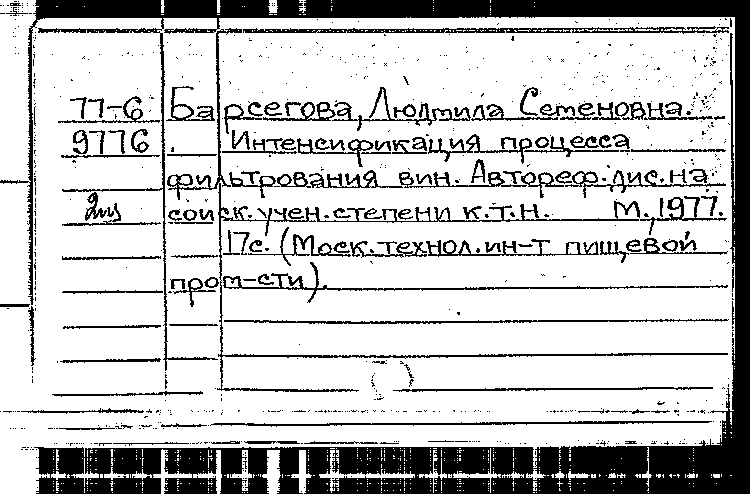 77-6 Барсегова, Людмила Семеновна.
9776 . Интенсификация процесса
фильтрования вин. Автореф.дис.на
соиск.учен.степени к.т.н. М.,1977.
17с. (Моск.технол.ин-т пищевой
пром-сти).